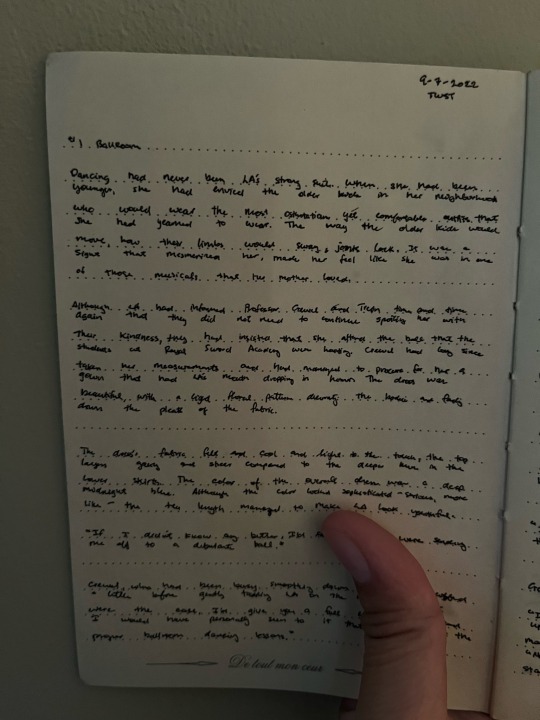 9-7-2022
TWST
#1. Ballroom
Dancing had never been LA's strong suit. When she had been
younger, she had envied the older kids in her neighborhood
who would wear the most ostentatious yet comfortable outfits that
she had yearned to wear. The way the older kids would
move, how their limbs would sway, joints lock. It was a
sight that mesmerized her, made her feel like she was in one
of those musicals that her mother loved.
Although LA had informed Professor Crewel and Trein time and time
again that they did not need to continue spoiling her with
their kindness, they had insisted that she attend the ball that the
students at Royal Sword Academy were hosting. Crewel had long since
taken her measurements and had managed to procure for her a
gown that had LA's mouth dropping in honor. The dress was
beautiful, with a light floral pattern the bodice and
down the pleats of the fabric.
The dress' fabric felt cool and light to the touch, the top
layer gauzy and sheer compared to the deeper hue in the
lower skirts. The color of the overall dress was a deep
midnight blue. Although the color looked sophisticated - serious, more
like - the tea length managed to make LA look youthful.
"If I didn't know any better, I'd were sending
one off to a debutante ball."
Crewel, who had been busy smoothing down
before gently LA in the
were the case, I'd give you a full
I would have personally seen to it that the
proper ballroom dancing lessons."
De tout mon cœur